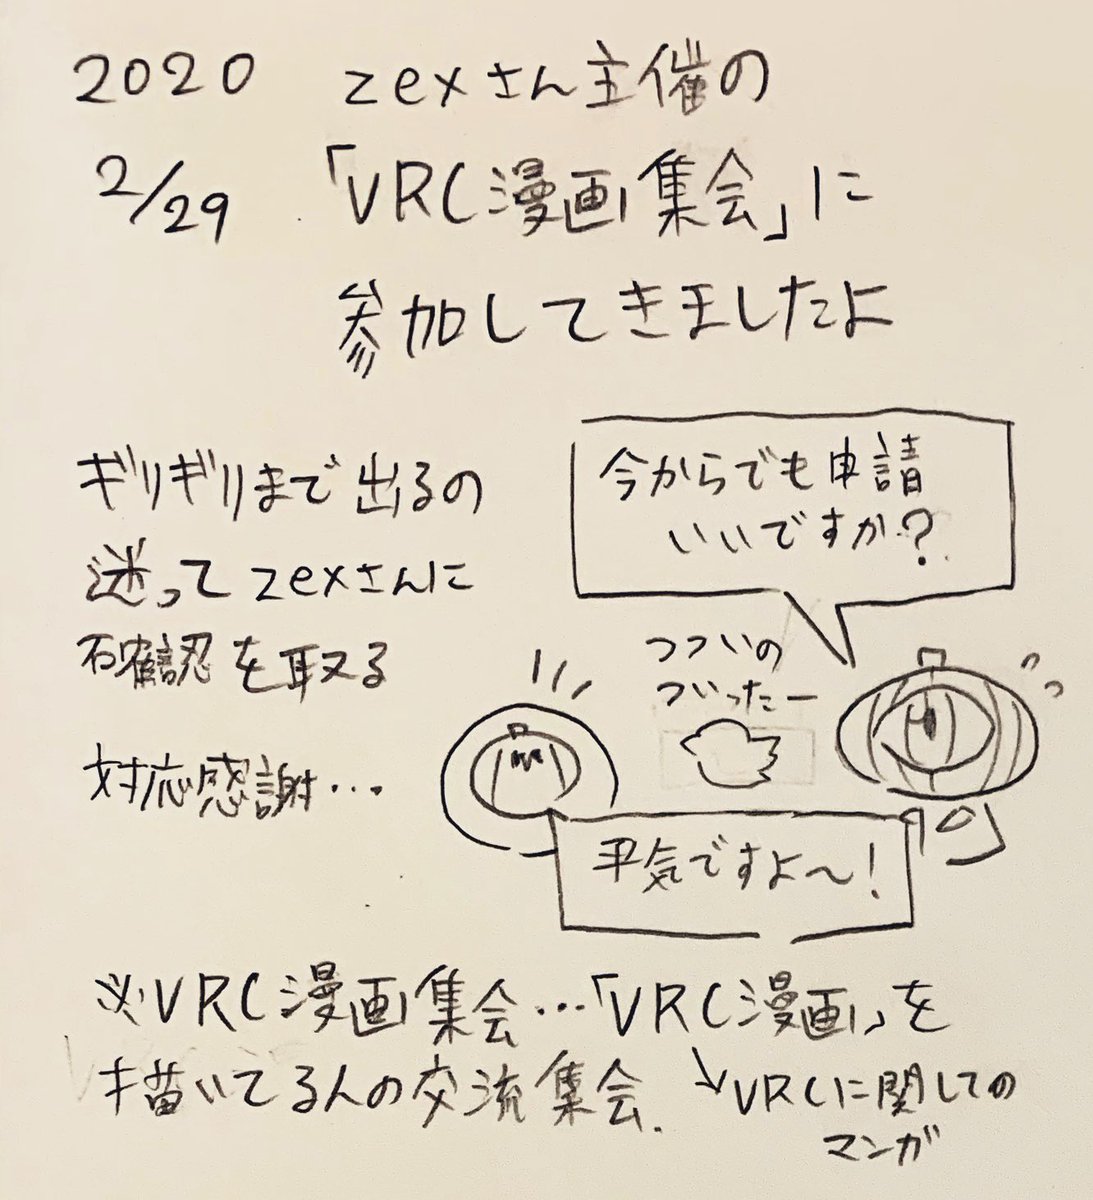 2020
2/29
zexさん主催の
「VRC漫画集会」に
参加してきましたよ
ギリギリまで出るの
迷ってzexさんに
確認を取る
対応感謝…
今からでも申請
いいですか?
つついの
ついったー
平気ですよ〜!
※VRC漫画集会…「VRC漫画」を
描いてる人の交流集会.
↘VRCに関しての
マンガ